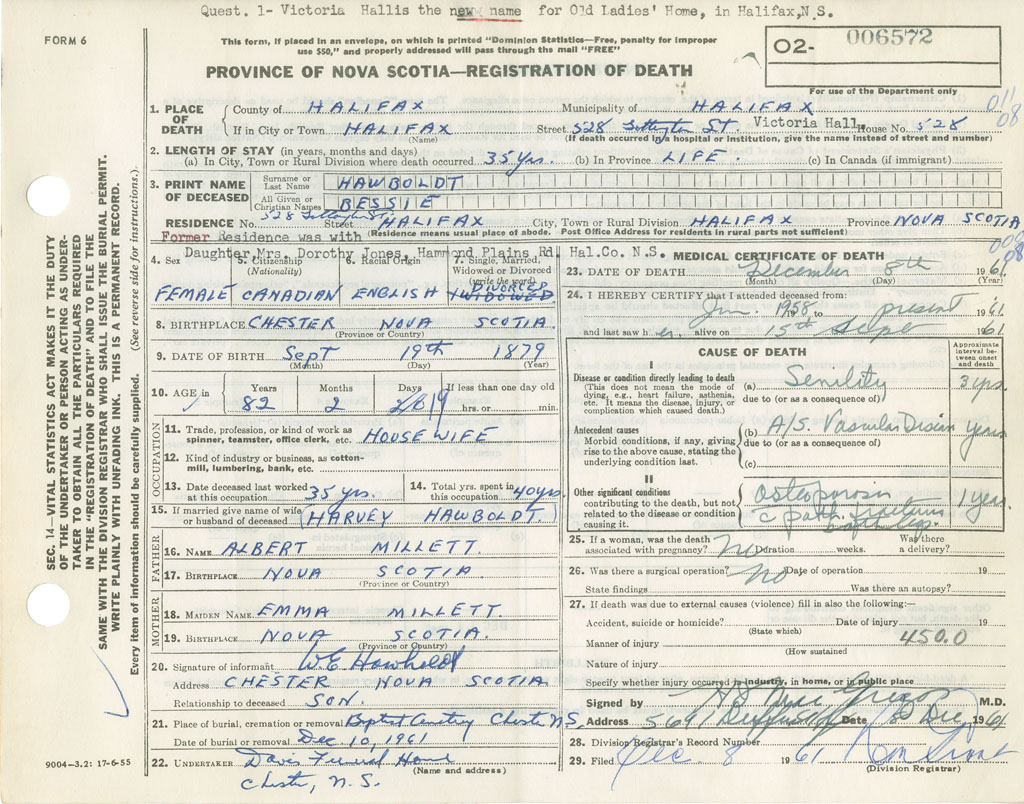 Quest. 1- Victoria Hallis the new name for Old Ladies' Home, in Halifax,N.S.
FORM 6
This form, if placed in an envelope, on which is printed "Dominion Statistics—Free, penalty for improper
use $50," and properly addressed will pass through the mail "FREE"
O2- 006572
PROVINCE OF NOVA SCOTIA—REGISTRATION OF DEATH
For use of the Department only
1. PLACE OF DEATH
County of HALIFAX Municipality of HALIFAX
011
08
If in City or Town HALIFAX Street 528 St. Victoria Hall, House No. 528
(Name) (If death occurred in a hospital or institution, give the name instead of street and number)
2. LENGTH OF STAY (in years, months and days)
(a) In City, Town or Rural Division where death occurred 35 yrs. (b) In Province LIFE. (c) In Canada (if immigrant)
3. PRINT NAME OF DECEASED
Surname or Last Name HAWBOLDT
All Given or Christian Names BESSIE
RESIDENCE No. 528 Street HALIFAX City, Town or Rural Division HALIFAX Province NOVA SCOTIA
(Residence means usual place of abode. Post Office Address for residents in rural parts not sufficient)
Former Residence was with
Daughter Mrs. Dorothy Jones, Hammond Plains Rd. Hal.Co. N.S.
008
08
4. Sex FEMALE
5. Citizenship (Nationality) CANADIAN
6. Racial Origin ENGLISH
7. Single, Married, Widowed or Divorced (write the word) DIVORCED WIDOWED
8. BIRTHPLACE CHESTER NOVA SCOTIA
(Province or Country)
9. DATE OF BIRTH Sept 19th 1879
(Month) (Day) (Year)
10. AGE in Years 82 Months 2 Days 19 If less than one day old hrs. or min.
OCCUPATION
11. Trade, profession, or kind of work as
spinner, teamster, office clerk, etc. HOUSEWIFE
12. Kind of industry or business, as cotton-
mill, lumbering, bank, etc.
13. Date deceased last worked at this occupation 35 yrs. 14. Total yrs. spent in this occupation 40 yrs
15. If married give name of wife or husband of deceased (HARVEY HAWBOLDT.)
FATHER
16. NAME ALBERT MILLETT.
17. BIRTHPLACE NOVA SCOTIA
(Province or Country)
MOTHER
18. MAIDEN NAME EMMA MILLETT
19. BIRTHPLACE NOVA SCOTIA.
(Province or Country)
20. Signature of informant W E Hawboldt
Address CHESTER NOVA SCOTIA.
Relationship to deceased SON.
21. Place of burial, cremation or removal Baptist Cemetery Chester N.S.
Date of burial or removal Dec 10, 1961
22. UNDERTAKER Davis Funeral Home
(Name and address)
Chester, N.S.
MEDICAL CERTIFICATE OF DEATH
23. DATE OF DEATH December 8th 1961
(Month) (Day) (Year)
24. I HEREBY CERTIFY that I attended deceased from:
Jan. 1958 to present 1961
and last saw her alive on 15th Sept 1961
CAUSE OF DEATH
Approximate interval between onset and death
I
Disease or condition directly leading to death
(This does not mean the mode of
dying, e.g., heart failure, asthenia,
etc. It means the disease, injury, or
complication which caused death.)
(a) Senility 3 yrs.
due to (or as a consequence of)
Antecedent causes
Morbid conditions, if any, giving
rise to the above cause, stating the
underlying condition last.
(b) A/S. Vascular Disease years
due to (or as a consequence of)
(c)
II
Other significant conditions
contributing to the death, but not
related to the disease or condition
causing it.
Osteoporosis 1 year
c path. fractures
both legs.
25. If a woman, was the death associated with pregnancy? No Duration weeks. Was there a delivery?
26. Was there a surgical operation? No Date of operation 19
State findings Was there an autopsy?
27. If death was due to external causes (violence) fill in also the following:—
Accident, suicide or homicide? Date of injury 19
(State which)
Manner of injury 450.0
(How sustained
Nature of injury
Specify whether injury occurred in industry, in home, or in public place
Signed by M.D.
Address 5691 Date 8 Dec 1961
28. Division Registrar's Record Number
29. Filed Dec 8 1961
(Division Registrar)
SEC. 14—VITAL STATISTICS ACT MAKES IT THE DUTY
OF THE UNDERTAKER OR PERSON ACTING AS UNDER-
TAKER TO OBTAIN ALL THE PARTICULARS REQUIRED
IN THE "REGISTRATION OF DEATH" AND TO FILE THE
SAME WITH THE DIVISION REGISTRAR WHO SHALL ISSUE THE BURIAL PERMIT.
WRITE PLAINLY WITH UNFADING INK. THIS IS A PERMANENT RECORD.
Every item of information should be carefully supplied. (See reverse side for instructions.)
9004-3.2: 17-6-55